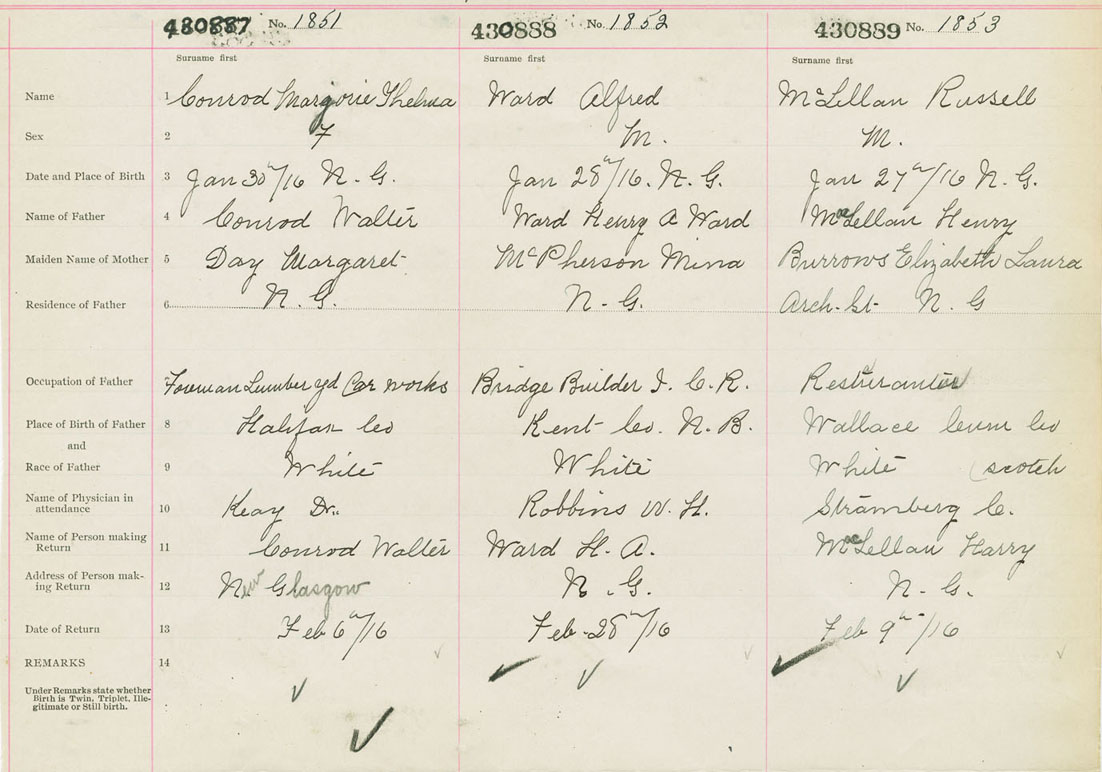 430887 No. 1851 430888 No. 1852 430889 No. 1853
Surname first Surname first Surname first
Name 1 Conrod Marjorie Thelma Ward Alfred McLellan Russell
Sex 2 F M. M.
Date and Place of Birth 3 Jan 30th/16 N. G. Jan 28th/16. N. G. Jan 27th/16 N. G.
Name of Father 4 Conrod Walter Ward Henry A Ward McLellan Henry
Maiden Name of Mother 5 Day Margaret McPherson Mina Burrows Elizabeth Laura
Residence of Father 6 N. G. N. G. Arch. St. N. G
Occupation of Father Foreman Lumber yd Car works Bridge Builder I. C. R. Resturantor
Place of Birth of Father 8 Halifax Co Kent Co. N. B. Wallace Cum Co
and
Race of Father 9 White White White (scotch
Name of Physician in attendance 10 Keay Dr. Robbins W. H. Stramberg C.
Name of Person making Return 11 Conrod Walter Ward H. A. McLellan Harry
Address of Person mak-ing Return 12 New Glasgow N. G. N. G.
Date of Return 13 Feb 6th/16 Feb 28th/16 Feb 9th/16
REMARKS 14
Under Remarks state whether
Birth is Twin, Triplet, Ille-
gitimate or Still birth.